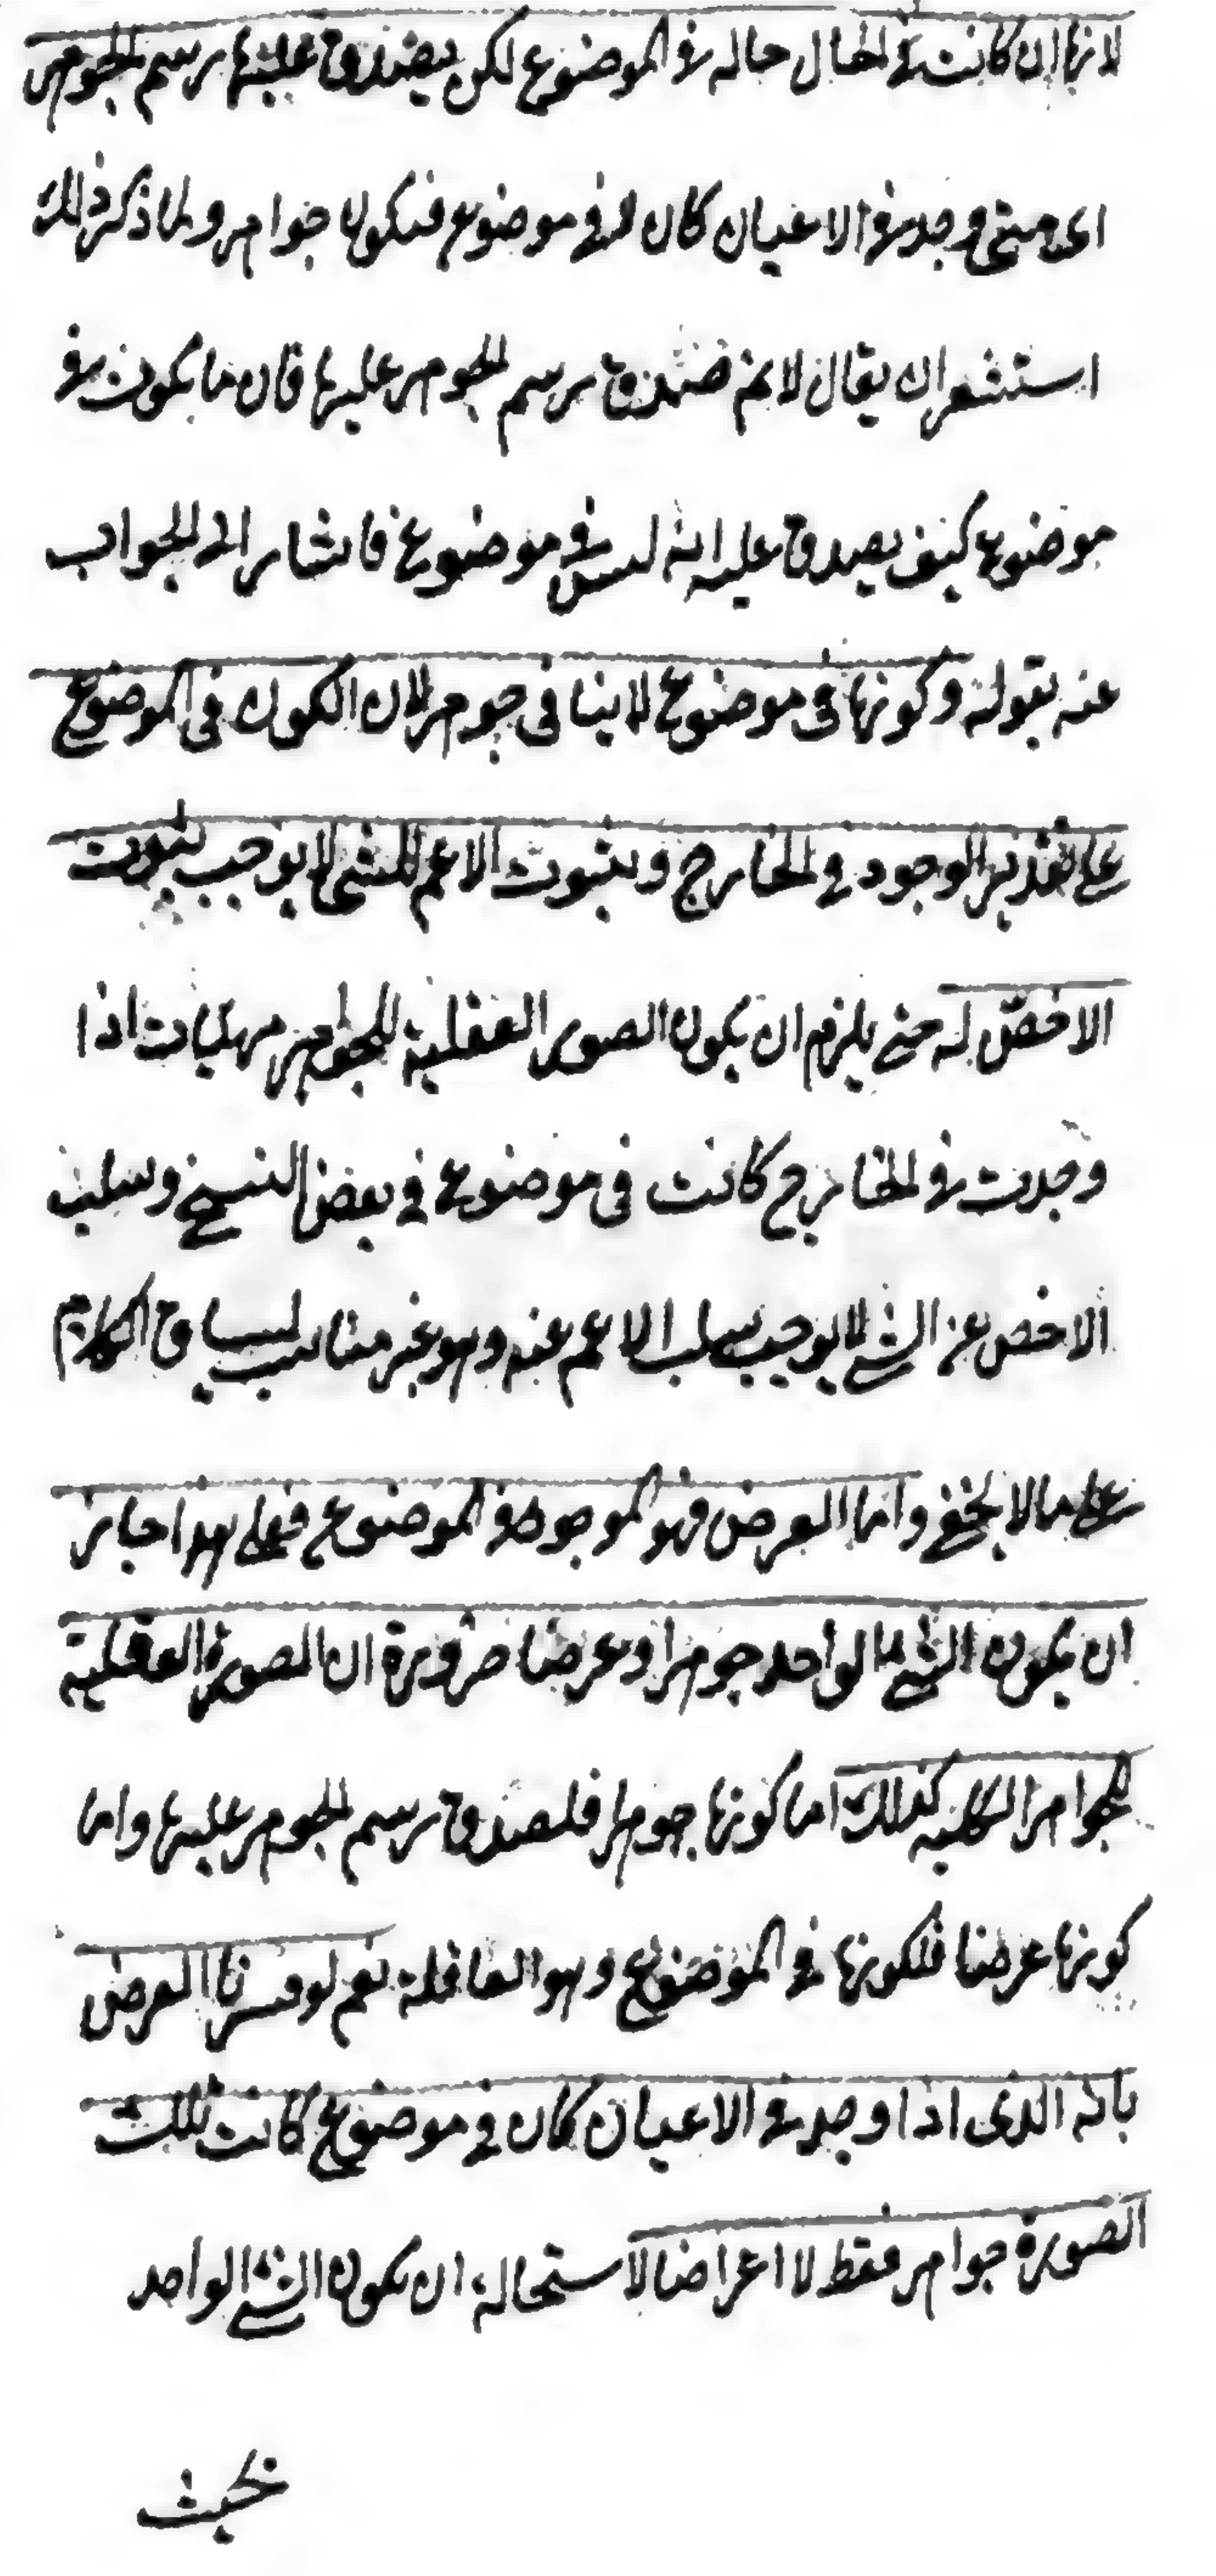 لانها ان كانت فى الحال حاله فى الموضوع لكن يصدق عليها رسم الجوهر
اى متى وجد فى الاعيان كان لا فى موضوع فتكون جواهر ولما ذكر ذلك
استشعر ان يقال لانم صدق رسم الجوهر عليها فان ما يكون فى
موضوع كيف يصدق عليه انه ليس فى موضوع فاشار الى الجواب
عنه بقوله وكونها فى موضوع لا ينافى جوهر لان الكون فى الموضوع
على تقدير الوجود فى الخارج وبثبوت الاعم للشى لا يوجب ثبوت
الاخص له حتى يلزم ان يكون الصور العقلية للجواهر مهيات اذا
وجدت فى الخارج كانت فى موضوع فى بعض النسخ وسلب
الاخص عن الشى لا يوجب سلب الاعم عنه وهو غير مناسب لسياق الكلام
على ما لا يخفى واما العرض فهو الموجود فى الموضوع فعلى هذا جاز
ان يكون الشى الواحد جوهرا وعرضا ضرورة ان الصورة العقلية
للجواهر الكليه كذلك اما كونها جوهرا فلصدق رسم الجوهر عليها واما
كونها عرضا فلكونها فى الموضوع وهو العاقلة نعم لو فسرنا العرض
بانه الذى اذا وجد فى الاعيان كان فى موضوع كانت تلك
الصورة جواهر فقط لا اعراضا لاستحالة ان يكون الشى الواحد
بحيث